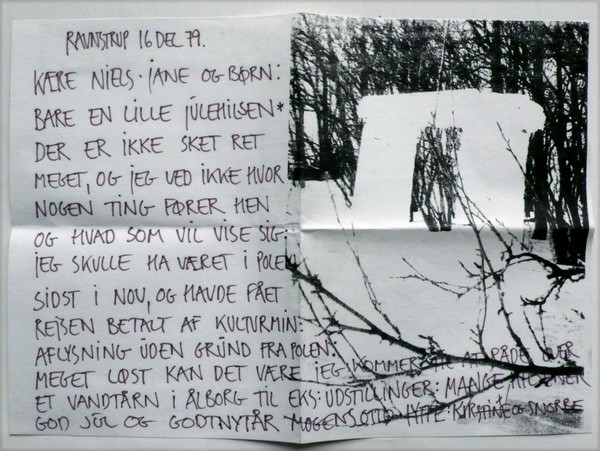 RAVNSTRUP 16 DEC 79.
KÆRE NIELS · JANE OG BØRN:
BARE EN LILLE JÜLEHILSEN*
DER ER IKKE SKET RET
MEGET, OG JEG VED IKKE HVOR
NOGEN TING FØRER HEN
OG HVAD SOM VIL VISE SIG:
JEG SKULLE HA VÆRET I POLEN
SIDST I NOV, OG HAVDE FÅET
REJSEN BETALT AF KULTURMIN:
AFLYSNING UDEN GRUND FRA POLEN:
MEGET LØST KAN DET VÆRE JEG KOMMER TIL AT RÅDE OVER
ET VANDTÅRN I ÅLBORG TIL EKS: UDSTILLINGER: MANGE HILSNER
GOD JUL OG GODTNYTÅR MOGENS OTTO KIRSTINE OG SNORRE